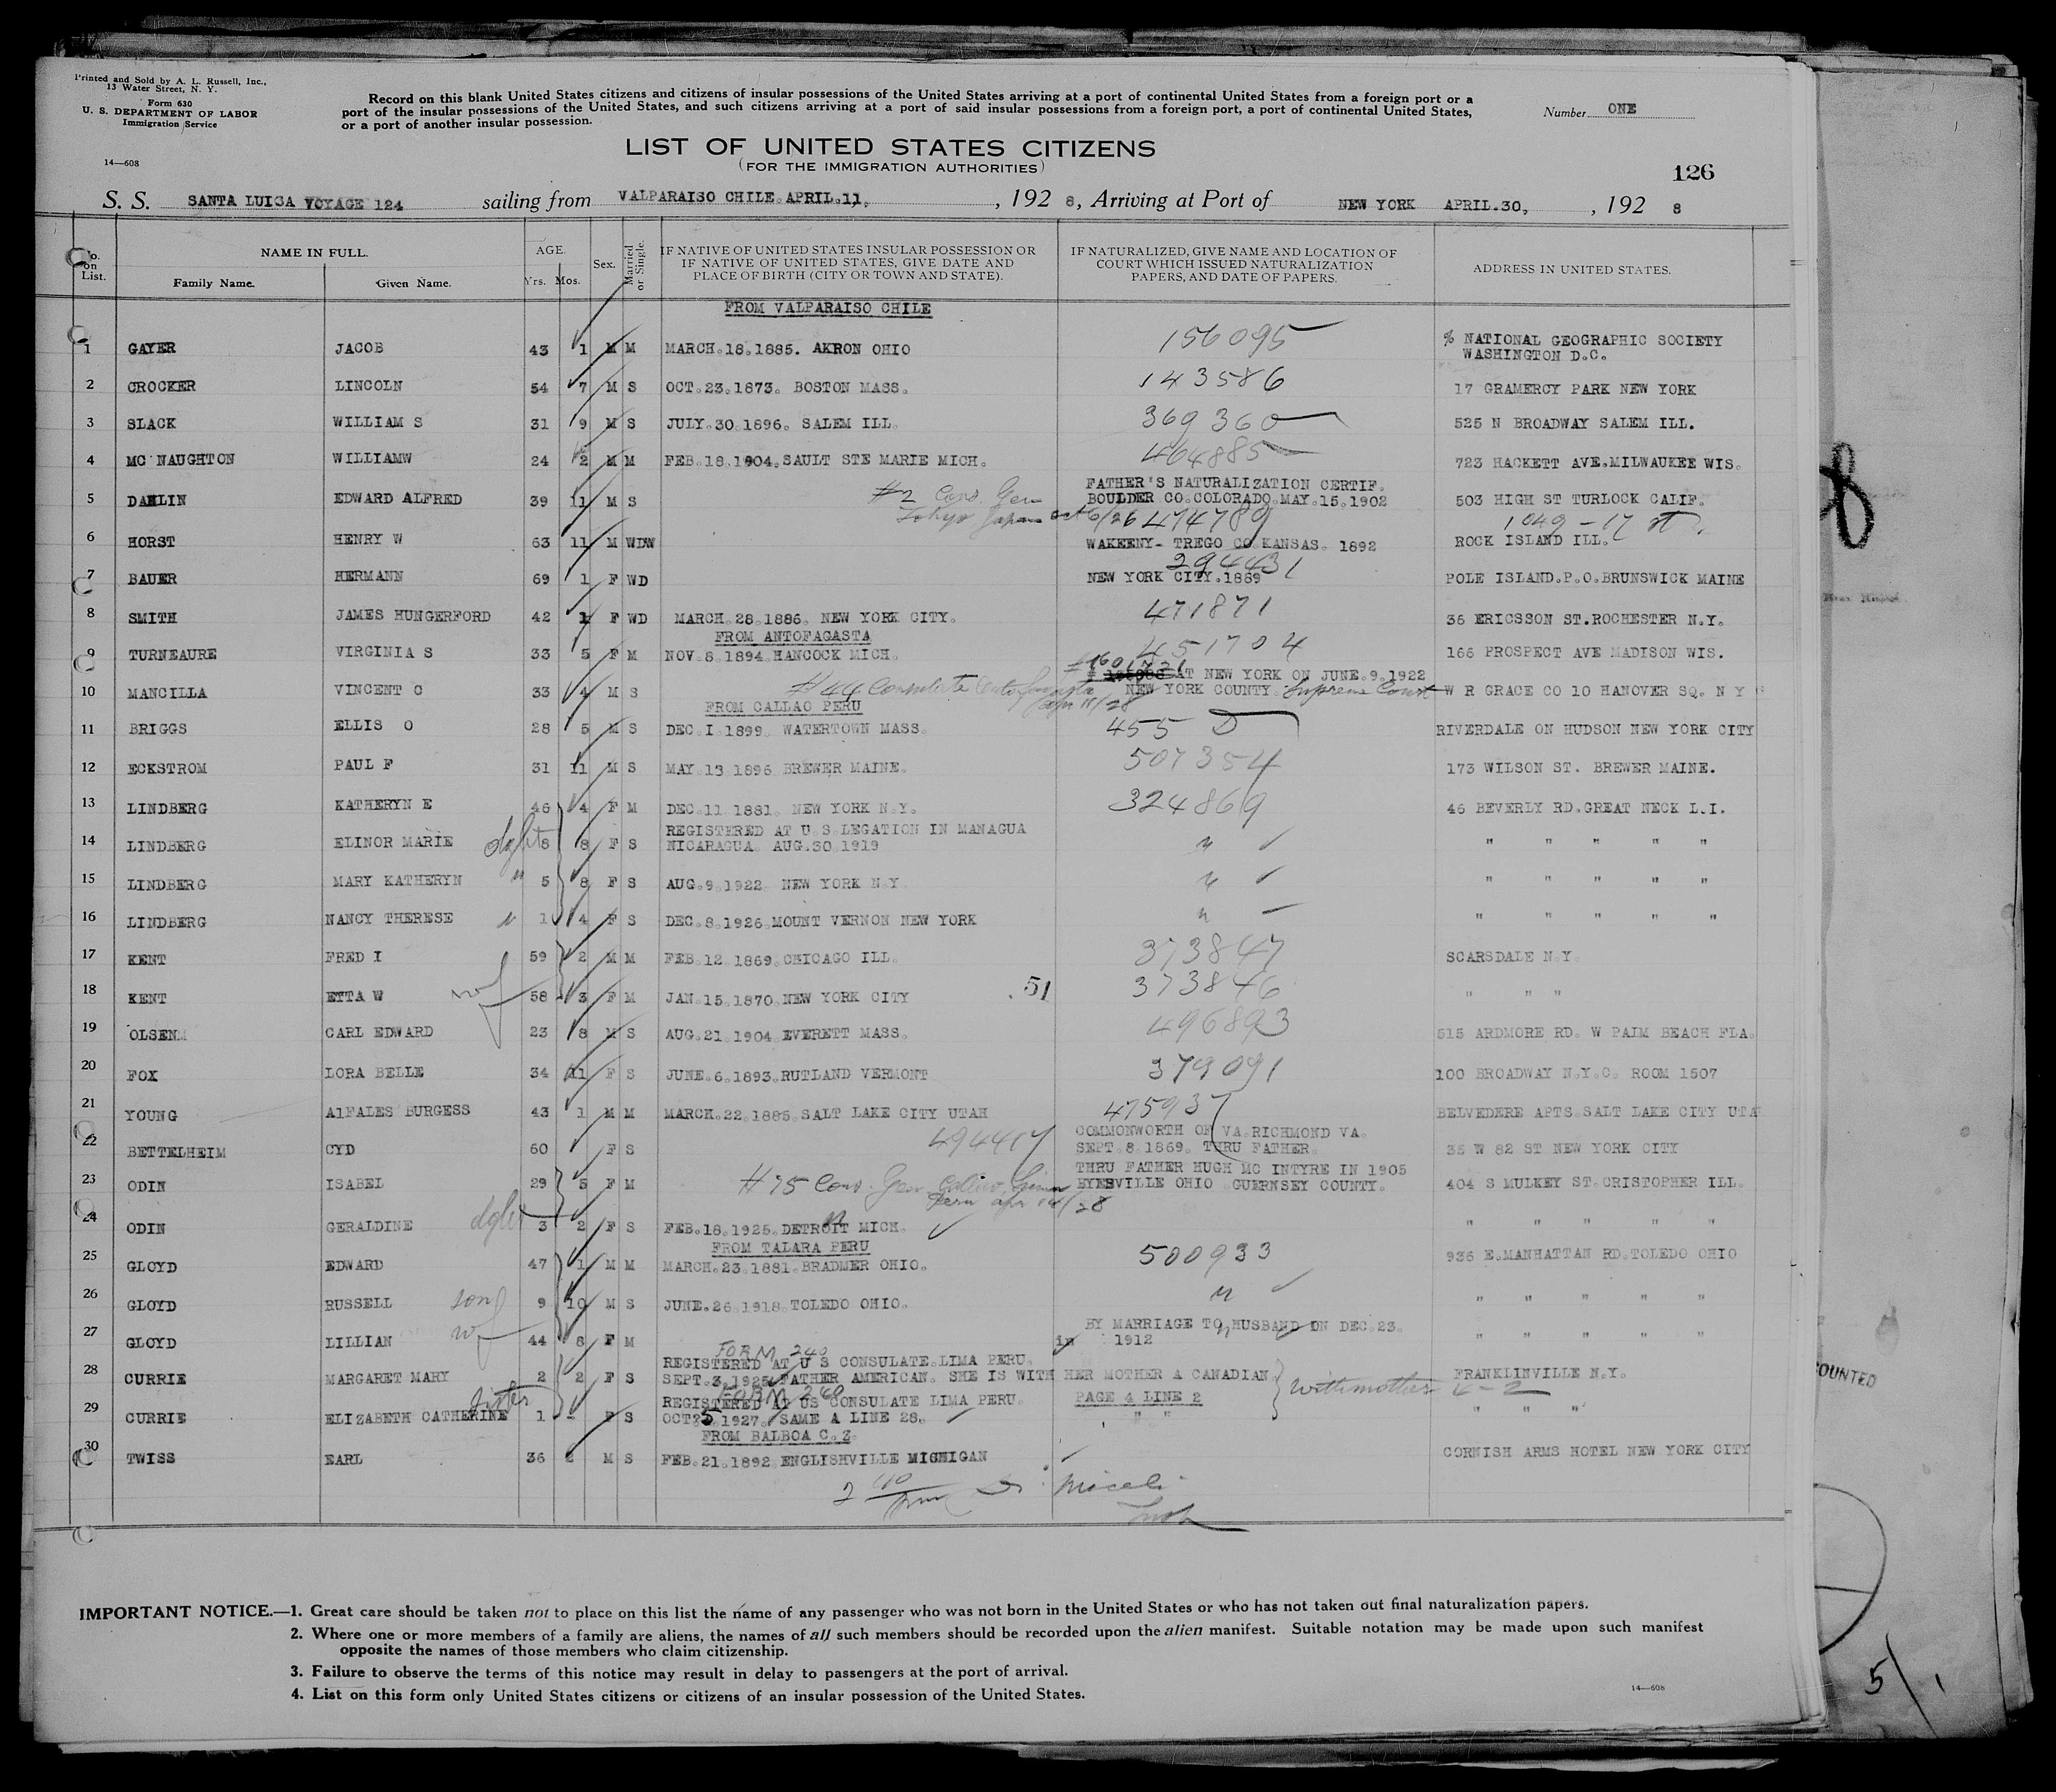 Printed and Sold by A. L. Russell, Inc.,
13 Water Street, N. Y.
Form 630
U. S. DEPARTMENT OF LABOR
Immigration Service
14—608
Record on this blank United States citizens and citizens of insular possessions of the United States arriving at a port of continental United States from a foreign port or a
port of the insular possessions of the United States, and such citizens arriving at a port of said insular possessions from a foreign port, a port of continental United States,
or a port of another insular possession.
Number ONE
LIST OF UNITED STATES CITIZENS
(FOR THE IMMIGRATION AUTHORITIES)
126
S. S. SANTA LUISA VOYAGE 124 sailing from VALPARAISO CHILE. APRIL.11. , 192 8, Arriving at Port of NEW YORK APRIL.30, , 192 8
No. on List. NAME IN FULL. Family Name. Given Name. AGE. Yrs. Mos. Sex. Married or Single. IF NATIVE OF UNITED STATES INSULAR POSSESSION OR IF NATIVE OF UNITED STATES, GIVE DATE AND PLACE OF BIRTH (CITY OR TOWN AND STATE). IF NATURALIZED, GIVE NAME AND LOCATION OF COURT WHICH ISSUED NATURALIZATION PAPERS, AND DATE OF PAPERS. ADDRESS IN UNITED STATES.
FROM VALPARAISO CHILE
1 GAYER JACOB 43 1 M M MARCH.18.1885. AKRON OHIO 156095 % NATIONAL GEOGRAPHIC SOCIETY
WASHINGTON D.C.
2 CROCKER LINCOLN 54 7 M S OCT.23.1873. BOSTON MASS. 143586 17 GRAMERCY PARK NEW YORK
3 SLACK WILLIAM S 31 9 M S JULY.30.1896. SALEM ILL. 369360 525 N BROADWAY SALEM ILL.
4 MC NAUGHTON WILLIAMW 24 2 M M FEB.18.1904.SAULT STE MARIE MICH. 464885 723 HACKETT AVE.MILWAUKEE WIS.
FATHER'S NATURALIZATION CERTIF.
5 DAHLIN EDWARD ALFRED 39 11 M S #2 Cons. Gen BOULDER CO.COLORADO.MAY.15.1902 503 HIGH ST TURLOCK CALIF.
Tokyo Japan Oct 6/26 474789 1049 - 17 st.
6 HORST HENRY W 63 11 M WDW WAKEENY- TREGO CO.KANSAS. 1892 ROCK ISLAND ILL.
294431
7 BAUER HERMANN 69 1 F WD NEW YORK CITY.1889 POLE ISLAND.P.O.BRUNSWICK MAINE
8 SMITH JAMES HUNGERFORD 42 1 F WD MARCH.28.1886. NEW YORK CITY. 471871 36 ERICSSON ST.ROCHESTER N.Y.
FROM ANTOFAGASTA
9 TURNEAURE VIRGINIA S 33 5 F M NOV.8.1894.HANCOCK MICH. 451704 166 PROSPECT AVE MADISON WIS.
#1601731 AT NEW YORK ON JUNE.9.1922
10 MANCILLA VINCENT O 33 4 M S #44 Consulate Antofagasta NEW YORK COUNTY. Supreme Court W R GRACE CO 10 HANOVER SQ. N Y
FROM CALLAO PERU
11 BRIGGS ELLIS O 28 5 M S DEC.I.1899. WATERTOWN MASS. 455 D RIVERDALE ON HUDSON NEW YORK CITY
12 ECKSTROM PAUL F 31 11 M S MAY.13.1896.BREWER MAINE. 507354 173 WILSON ST. BREWER MAINE.
13 LINDBERG KATHERYN E 46 4 F M DEC.11.1881. NEW YORK N.Y. 324869 46 BEVERLY RD.GREAT NECK L.I.
REGISTERED AT U.S.LEGATION IN MANAGUA
14 LINDBERG ELINOR MARIE dghts 8 8 F S NICARAGUA. AUG.30.1919 " " " " " "
15 LINDBERG MARY KATHERYN " 5 8 F S AUG.9.1922. NEW YORK N.Y. " " " " " "
16 LINDBERG NANCY THERESE " 1 4 F S DEC.8.1926.MOUNT VERNON NEW YORK " " " " " "
17 KENT FRED I 59 2 M M FEB.12.1869.CHICAGO ILL. 373847 SCARSDALE N.Y.
18 KENT ETTA W wf 58 3 F M JAN.15.1870.NEW YORK CITY 51 373846 " " "
19 OLSEN CARL EDWARD 23 8 M S AUG.21.1904.EVERETT MASS. 496893 515 ARDMORE RD. W PALM BEACH FLA.
20 FOX LORA BELLE 34 11 F S JUNE.6.1893.RUTLAND VERMONT 379091 100 BROADWAY N.Y.C. ROOM 1507
21 YOUNG AlFALES BURGESS 43 1 M M MARCH.22.1885.SALT LAKE CITY UTAH 475937 BELVEDERE APTS.SALT LAKE CITY UTA
494417 COMMONWORTH OF VA.RICHMOND VA.
22 BETTELHEIM CYD 60 F S SEPT.8.1869. THRU FATHER. 35 W 82 ST NEW YORK CITY
THRU FATHER HUGH MC INTYRE IN 1905
23 ODIN ISABEL 29 5 F M #75 Cons. Gen Callao, Lima BYESVILLE OHIO GUERNSEY COUNTY. 404 S MULKEY ST.CRISTOPHER ILL.
Peru apr 14/28
24 ODIN GERALDINE dghtr 3 2 F S FEB.18.1925.DETROIT MICH. " " " " "
FROM TALARA PERU
25 GLOYD EDWARD 47 1 M M MARCH.23.1881.BRADNER OHIO. 500933 936 E.MANHATTAN RD.TOLEDO OHIO
26 GLOYD RUSSELL son 9 10 M S JUNE.26.1918.TOLEDO OHIO. " " " " " "
BY MARRIAGE TO HUSBAND ON DEC.23.
27 GLOYD LILLIAN wf 44 8 F M in 1912 " " " " "
FORM 240
REGISTERED AT U S CONSULATE.LIMA PERU.
28 CURRIE MARGARET MARY 2 2 F S SEPT.3.1925.FATHER AMERICAN. SHE IS WITH HER MOTHER A CANADIAN FRANKLINVILLE N.Y.
FORM 240 With mother 4-2
REGISTERED AT US CONSULATE LIMA PERU. PAGE 4 LINE 2
29 CURRIE ELIZABETH CATHERINE sister 1 - F S OCT.5.1927. SAME A LINE 28. " " " " "
FROM BALBOA C.Z.
30 TWISS EARL 36 2 M S FEB.21.1892.ENGLISHVILLE MICHIGAN CORNISH ARMS HOTEL NEW YORK CITY
IMPORTANT NOTICE.—1. Great care should be taken not to place on this list the name of any passenger who was not born in the United States or who has not taken out final naturalization papers.
2. Where one or more members of a family are aliens, the names of all such members should be recorded upon the alien manifest. Suitable notation may be made upon such manifest
opposite the names of those members who claim citizenship.
3. Failure to observe the terms of this notice may result in delay to passengers at the port of arrival.
4. List on this form only United States citizens or citizens of an insular possession of the United States.
14—608
OUNTED
5/1